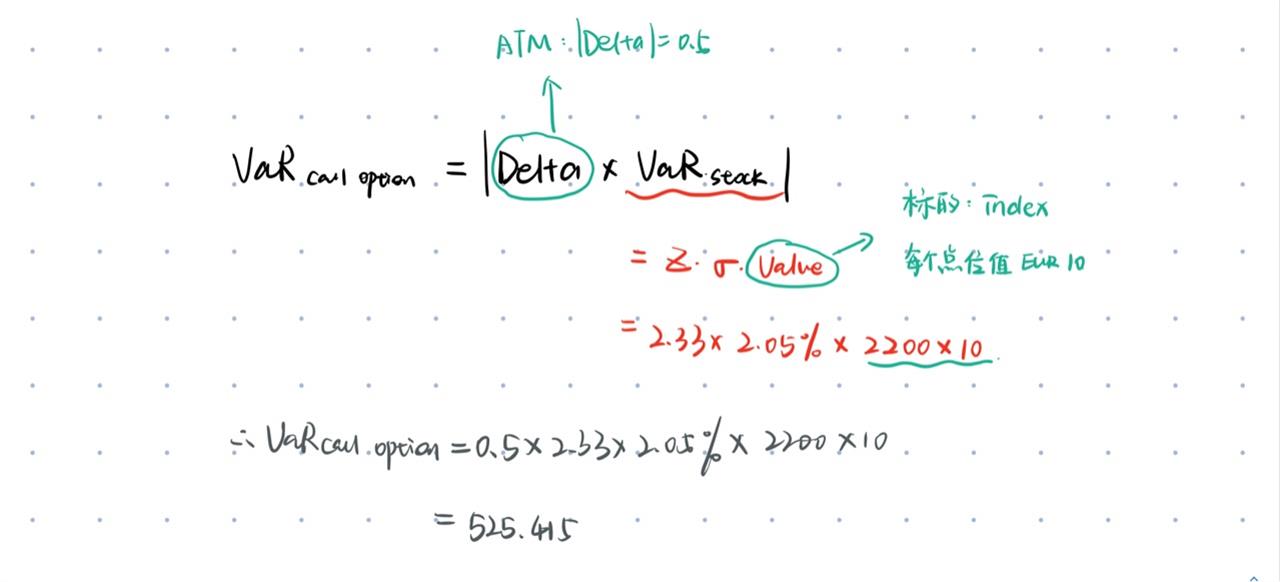 ATM: |Delta| = 0.5
VaR call option = |Delta × VaR stock|
标的: index
= Z · σ · Value
每个点位值 EUR 10
= 2.33 × 2.05% × 2200 × 10
∴ VaR call option = 0.5 × 2.33 × 2.05% × 2200 × 10
= 525.415